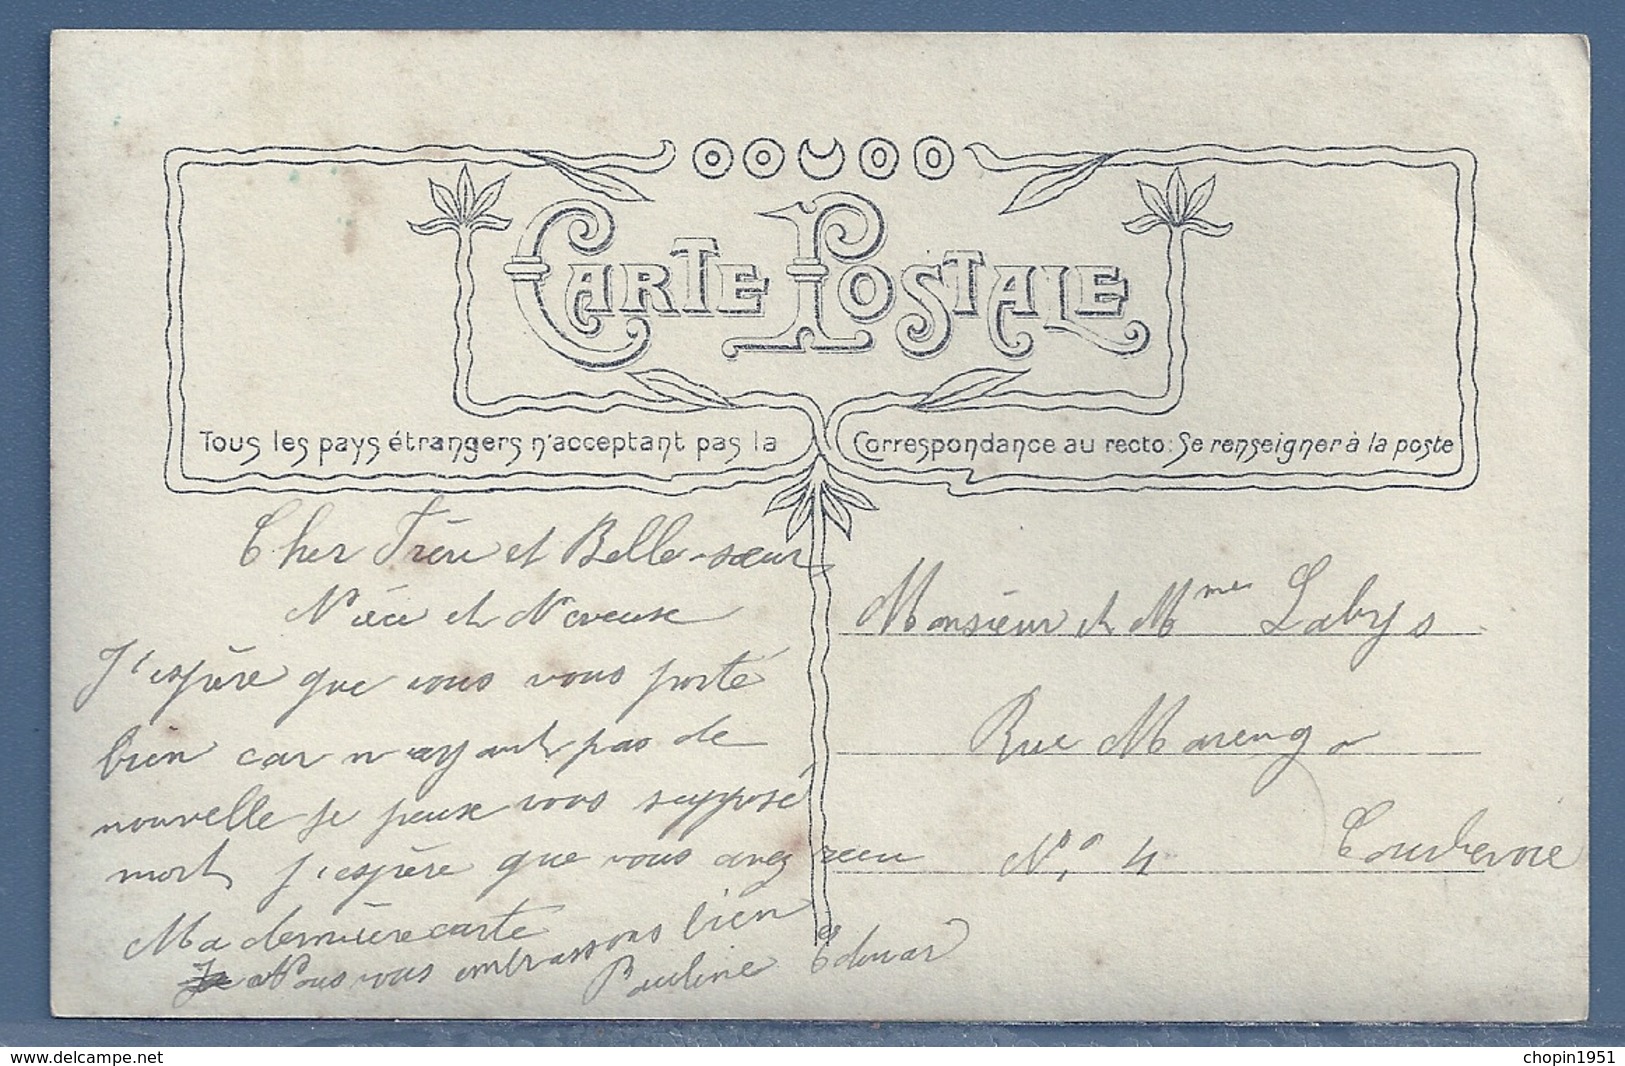 CARTE POSTALE
Tous les pays étrangers n'acceptant pas la Correspondance au recto: Se renseigner à la poste
Cher Frère et Belle-sœur
Nièce et Neveuse
J'espère que vous vous porté
bien car n'ayant pas de
nouvelle je peuxe vous supposé
mort j'espère que vous avez recu
Ma dernière carte
Nous vous embrassons bien
Pauline Edouar
Monsieur et Mme Labys
Rue Marengo
No 4 Courbevoie
delcampe.net
chopin1951